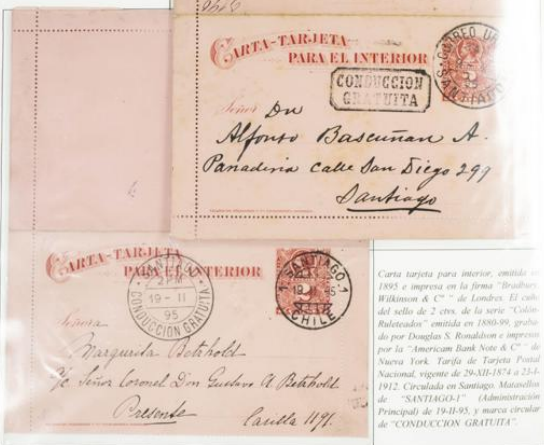 CARTA-TARJETA
PARA EL INTERIOR
CONDUCCION
GRATUITA
CORREO UR
SANTIAGO
Señor Dn
Alfonso Bascuñan A.
Panaderia calle San Diego 299
Santiago
CARTA-TARJETA
PARA EL INTERIOR
SANTIAGO
2 PM
19-II
95
CONDUCCION GRATUITA
1 SANTIAGO 1
CHILE
Señora
Margarita Betzhold
c/o Señor Coronel Don Gustavo A. Betzhold
Presente
Casilla 1191.
Carta tarjeta para interior, emitida en
1895 e impresa en la firma "Bradbury
Wilkinson & Cº " de Londres. El cuño
del sello de 2 ctvs. de la serie "Colón-
Ruleteados" emitida en 1880-99, graba-
do por Douglas S. Ronaldson e impresos
por la "American Bank Note & Cº " de
Nueva York. Tarifa de Tarjeta Postal
Nacional, vigente de 29-XII-1874 a 23-I-
1912. Circulada en Santiago. Matasellos
de "SANTIAGO-1" (Administración
Principal) de 19-II-95, y marca circular
de "CONDUCCION GRATUITA".